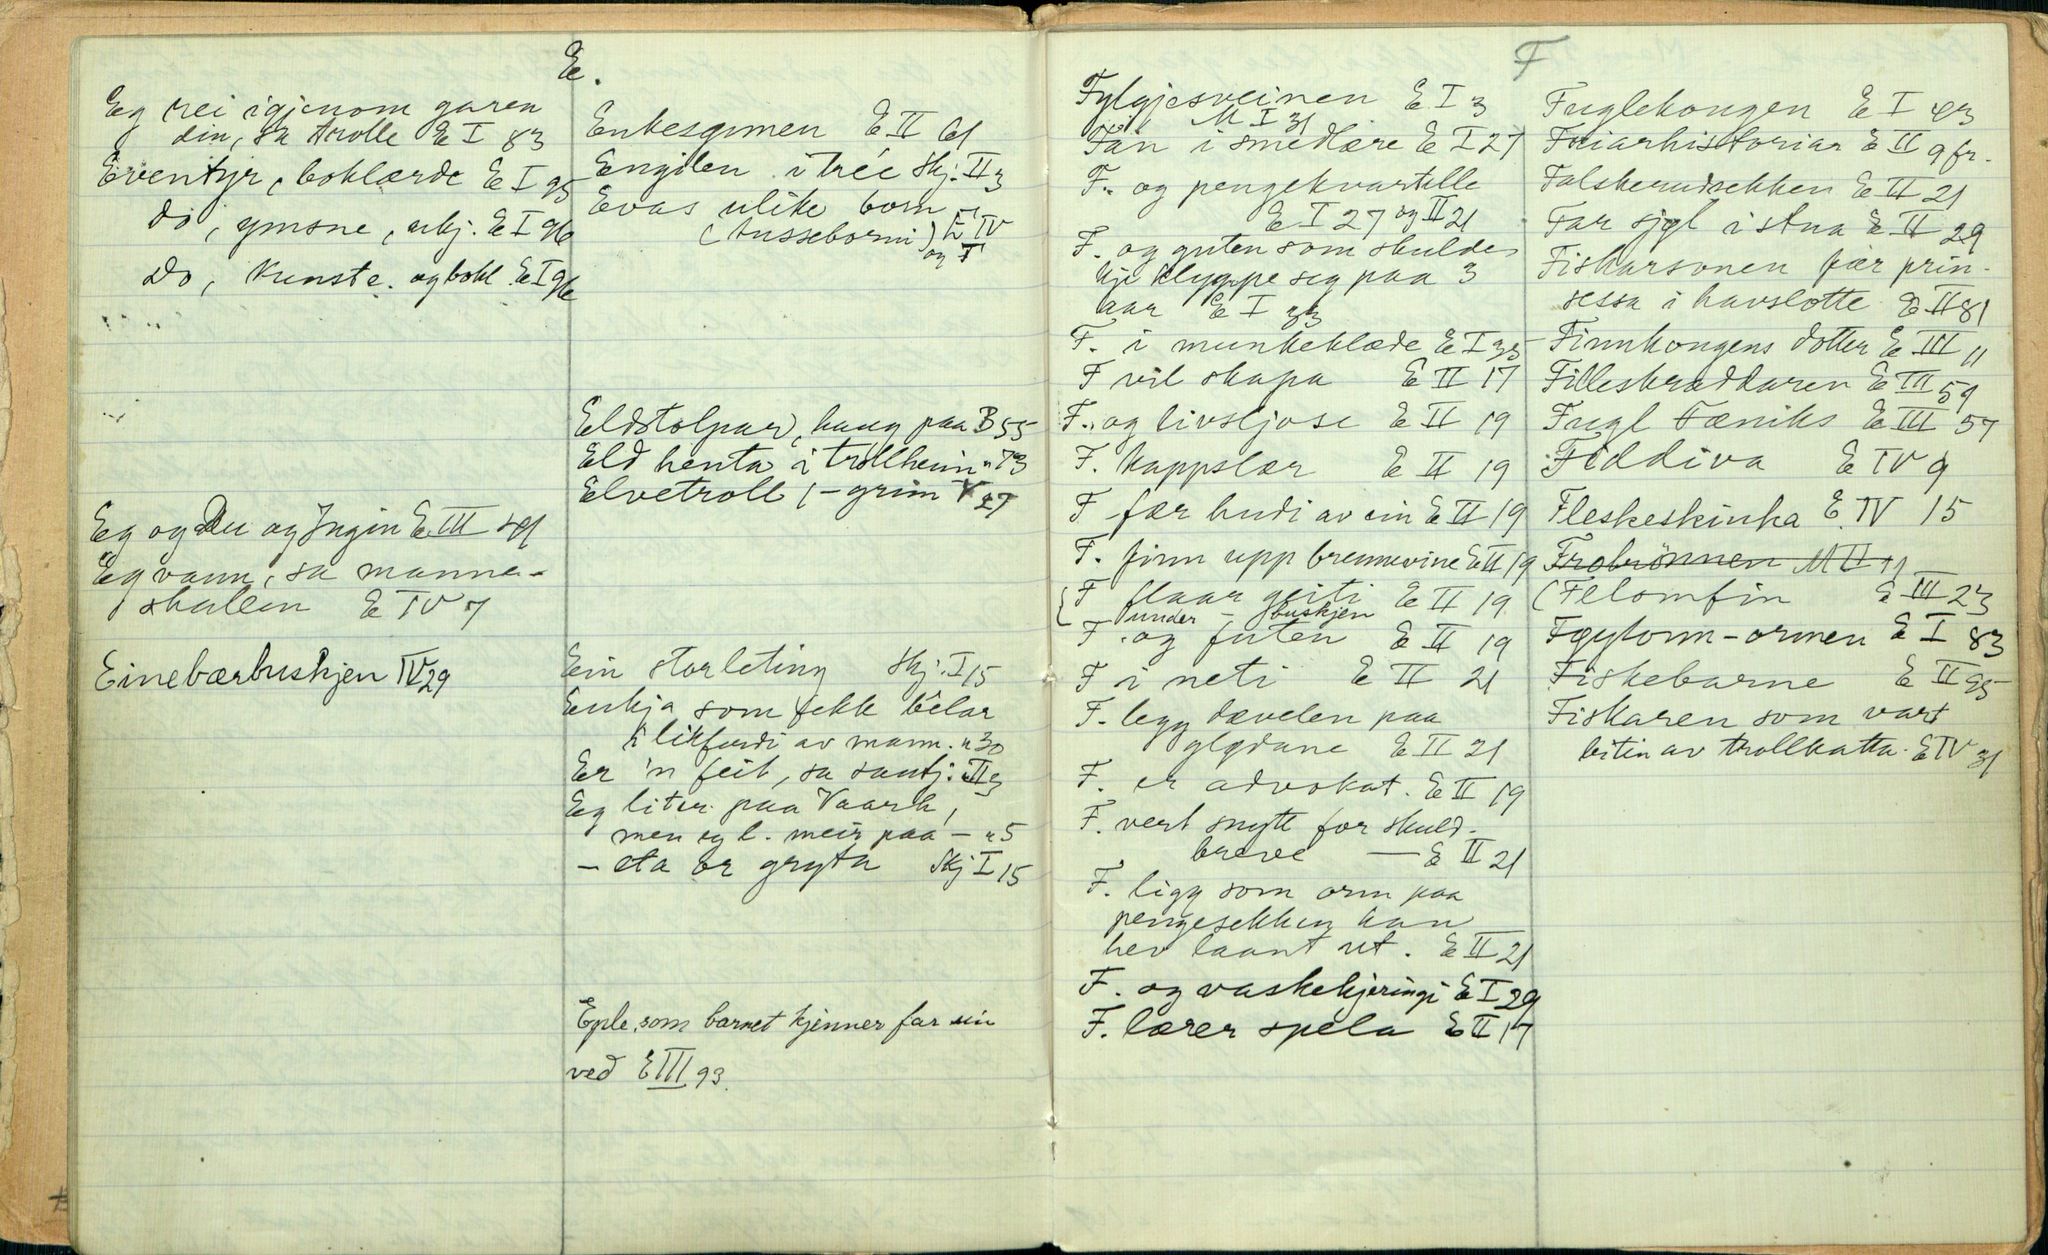 E.
Eg rei igjenom garen
din, sa trolle E I 83
Eventyr, boklærde E I 95
do, ymsne, ukj. E I 96
do, kunste. og bokl. E I 96
Eg og Du og Ingin E III
Eg vann, sa manne-
skallen E IV 7
Einebærbuskjen IV 29
Enkesymen E II 61
Engilen i tréé Skj. II 3
Evas ulike born
(tusseborni) E IV
og V
Eldstolpar, haug paa B 55
Eld henta i trollheim " 73
Elvetroll, - grim V 27
Ein storleting Skj. I 15
Enkja som fekk bélar
i likferdi av mann. " 30
Er 'n feit, sa
Eg liter paa Vaarh,
men eg l. meir paa - " 5
- eta or gryta Skj I 15
Eple, som barnet kjenner far sin
ved E III 93.
F
Fylgjesveinen E I 3
M I 31
Fan i smedlære E I 27
F. og pengekvartelle
E I 27 og II 21
F. og guten som skulde
kje klyppe seg paa 3
aar E I 33
F. i munkeklæde E I 35
F vil skapa E II 17
F. og livsljose E II 19
F. kappslær E II 19
F fær hudi av ein E II 19
F. finn upp brennevine E II 19
F flaar geiti E II 19
under - buskjen
F. og futen E II 19
F i neti E II 21
F. legg dævelen paa
glødane E II 21
F. er advokat. E II 19
F. vert snytt for skuld-
breve - E II 21
F. ligg som orm paa
pengesekken han
hev laant ut. E II 21
F. og vaskekjeringi E I 29
F. lærer spela E II 17
Fuglekongen E I 43
Friarhistoriar E II 9 fr.
Falskerudsekken E II 21
Far sjøl i stua E II 29
Fiskarsonen fær prin-
sessa i havslotte E II 81
Finnkongens dotter E III 11
Filleskræddaren E III 59
Fugl Føniks E III 57
Fiddiva E IV 9
Fleskeskinka E. IV 15
Frobrönnen M II 11
(Felomfin E III 23
Føytorm-ormen E I 83
Fiskebarne E II 95
Fiskaren som vart
bitin av trollkatta. E IV 31